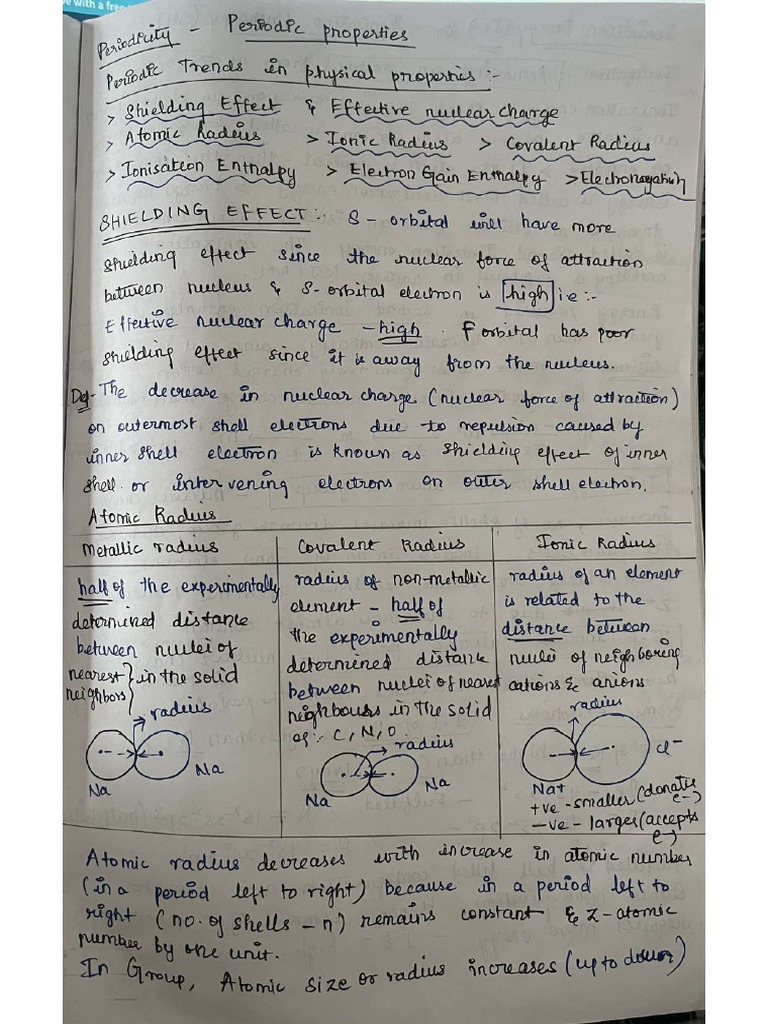 be with a free
Periodicity - Periodic properties
Periodic Trends in physical properties :-
> Shielding Effect & Effective nuclear charge
> Atomic Radius > Ionic Radius > Covalent Radius
> Ionisation Enthalpy > Electron Gain Enthalpy > Electronegativity
SHIELDING EFFECT :- S-orbital will have more
shielding effect since the nuclear force of attraction
between nucleus & S-orbital electron is high ie :-
Effective nuclear charge - high. F orbital has poor
shielding effect since it is away from the nucleus.
Def- The decrease in nuclear charge (nuclear force of attraction)
on outermost shell electrons due to repulsion caused by
inner shell electron is known as shielding effect of inner
shell or intervening electrons on outer shell electron.
Atomic Radius
Metallic radius
half of the experimentally
determined distance
between nuclei of
nearest neighbors } in the solid
radius
Na Na
Covalent Radius
radius of non-metallic
element - half of
the experimentally
determined distance
between nuclei of nearest
neighbours in the solid
eg :- C, N, O.
radius
Na Na
Ionic Radius
radius of an element
is related to the
distance between
nuclei of neighboring
cations & anions
radius
Na+ Cl-
+ve - smaller (donates e-)
-ve - larger (accepts e-)
Atomic radius decreases with increase in atomic number
(in a period left to right) because in a period left to
right (no. of shells - n) remains constant & Z-atomic
number by one unit.
In Group, Atomic size or radius increases (up to down)